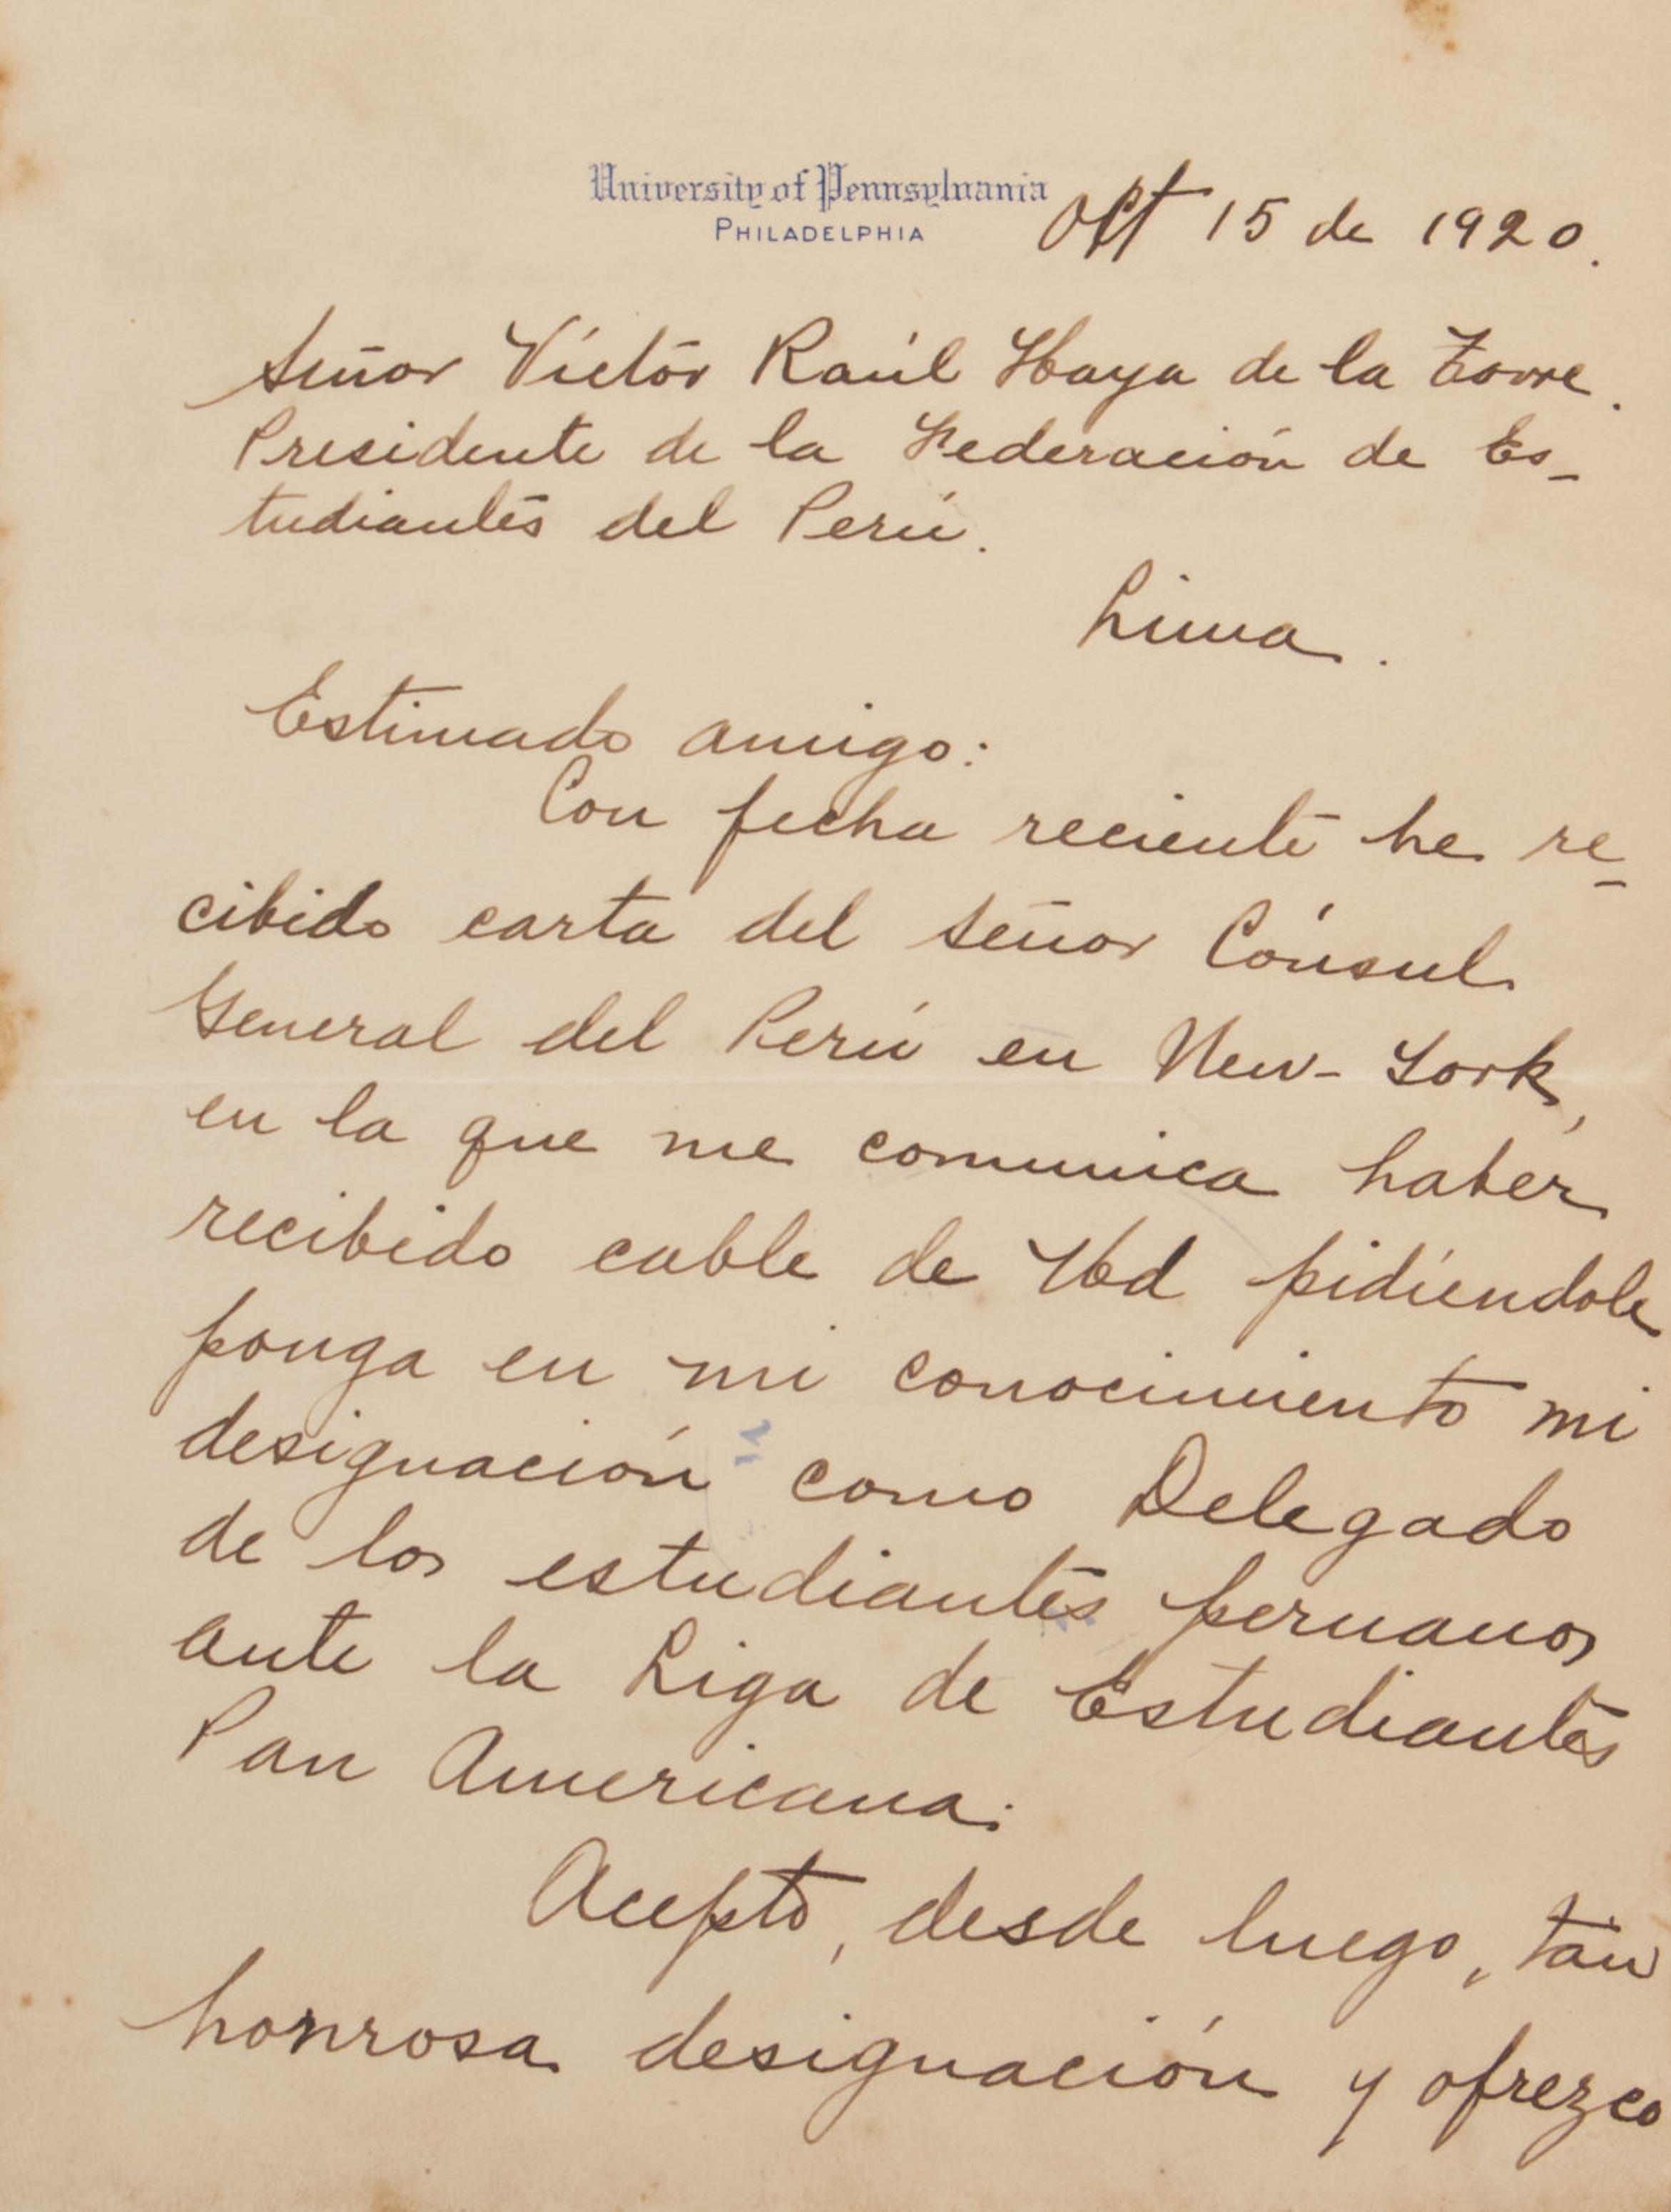 University of Pennsylvania
PHILADELPHIA
Oct 15 de 1920.
Señor Víctor Raúl Haya de la Torre.
Presidente de la Federación de Es-
tudiantes del Perú.
Lima.
Estimado amigo:
Con fecha reciente he re-
cibido carta del señor Cónsul
General del Perú en New-York,
en la que me comunica haber
recibido cable de Ud pidiéndole
ponga en mi conocimiento mi
designación como Delegado
de los estudiantes peruanos
ante la Liga de Estudiantes
Pan Americana.
Acepto, desde luego, tan
honrosa designación y ofrezco